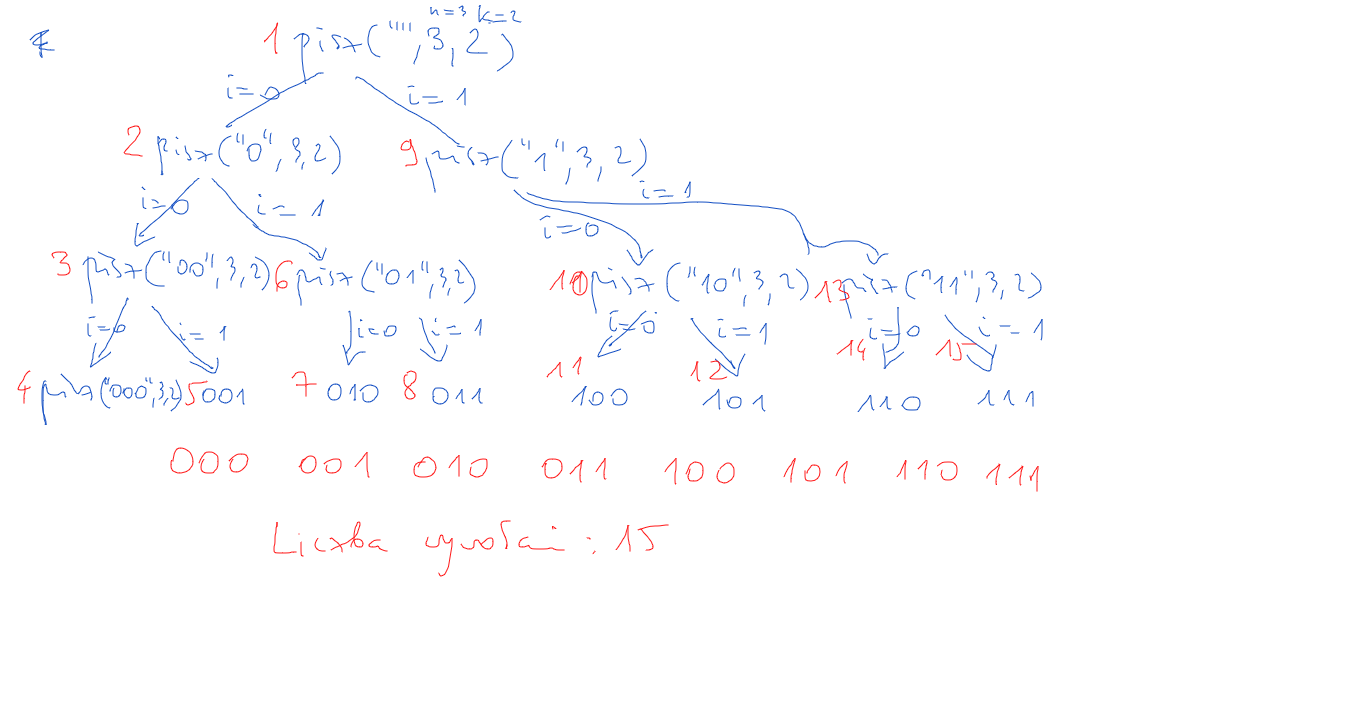 n=3 k=2
1 pisz("",3,2)
i=0 i=1
2 pisz("0",3,2) 9 pisz("1",3,2)
i=0 i=1 i=0 i=1
3 pisz("00",3,2) 6 pisz("01",3,2) 10 pisz("10",3,2) 13 pisz("11",3,2)
i=0 i=1 i=0 i=1 i=0 i=1 i=0 i=1
4 pisz("000",3,2) 5 001 7 010 8 011 11 100 12 101 14 110 15 111
000 001 010 011 100 101 110 111
Liczba wywołań : 15